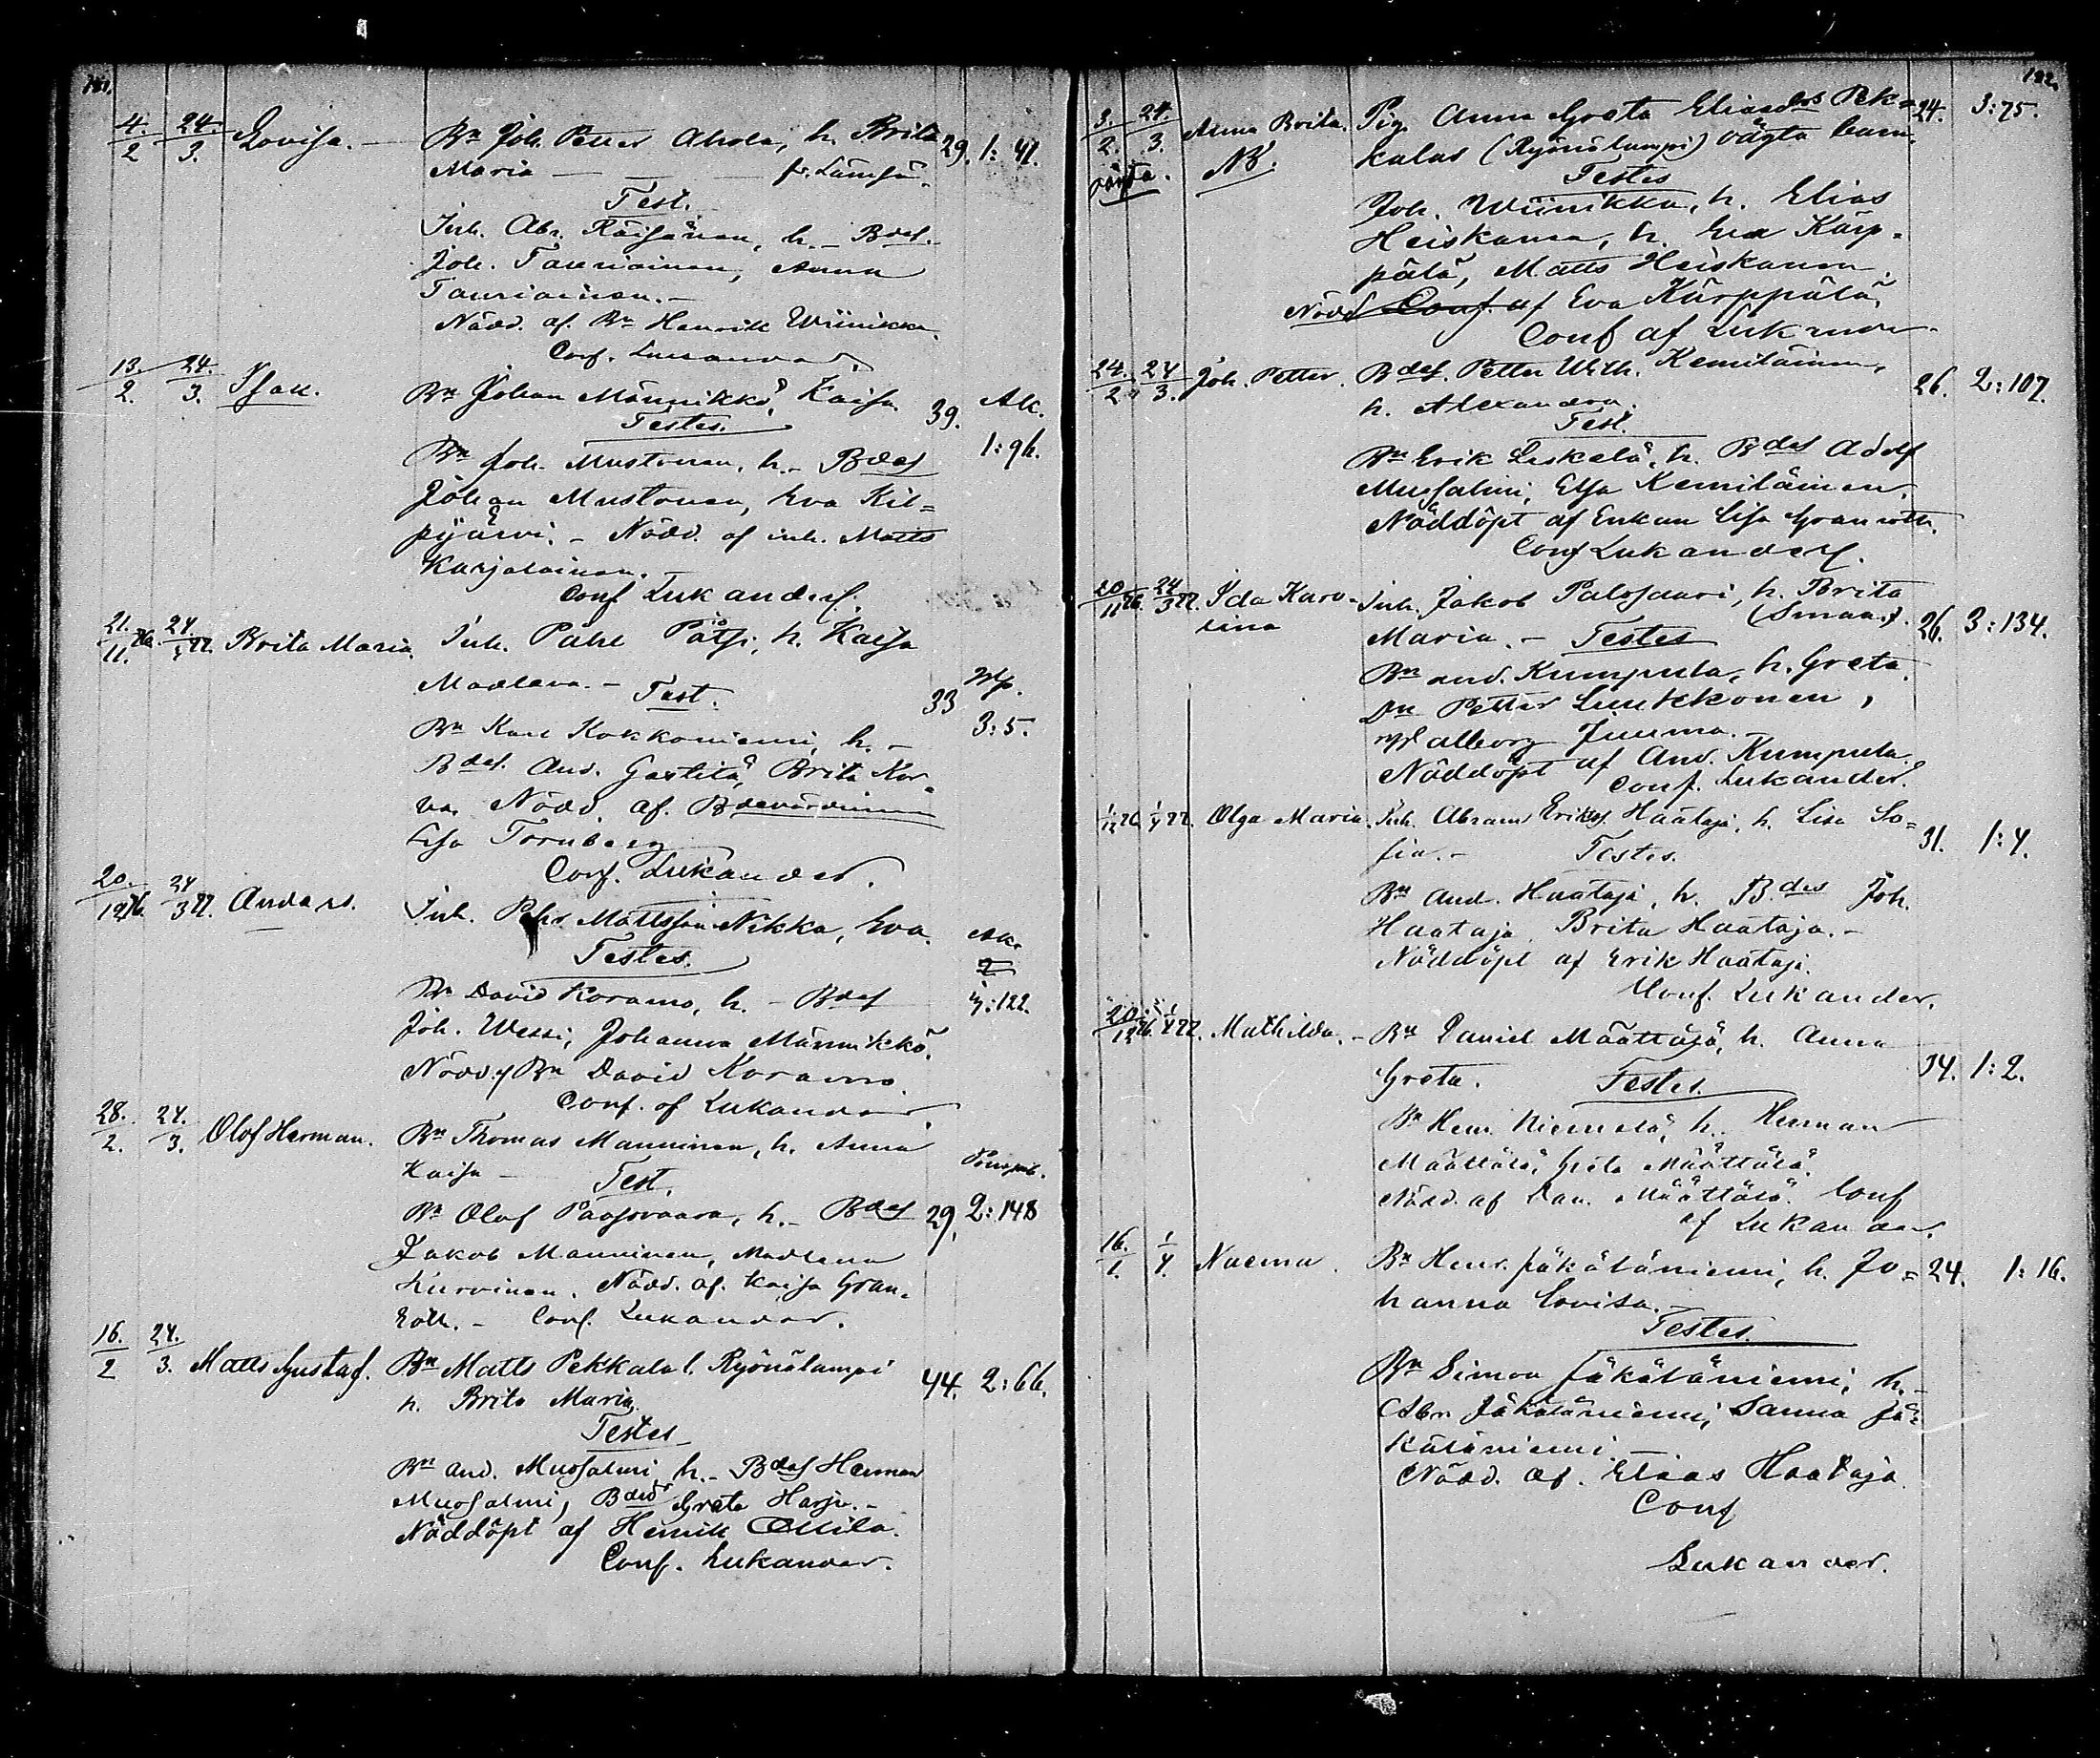 181.
4./2 24./3. Lovisa. — Bn Joh. Petter Ahola, h. Brita 29. 1: 41.
Maria — — — fr. Lämsä.
Test.
Inh. Abr. Räisänen, h. – Bdes.
Joh. Tauriainen, Anna
Tauriainen. –
Nödd. af. Bn Henrik Wiinikka.
Conf. Lukander.
13./2. 24./3. Isak. Bn Johan Männikkö, Kaisa 39. Ak.
Testes. 1:96.
Bn Joh. Mustonen, h. – Bdes
Johan Mustonen, Eva Kil=
pijärvi. – Nödd. af inh. Matts
Karjalainen.
Conf Lukander.
21./11. 76. 24/3 77. Brita Maria. Inh. Påhl Pätsi, h. Kaisa
Madlena. – Test. 33
3:5.
Bn Karl Kokkoniemi, h. –
Bdes. And. Gastitä, Brita Kor=
va. Nödd. af.
Lisa Tornberg
Conf. Lukander.
20./12 76. 24/3 77. Anders. Inh. Pehr Mattsson Nikka, Eva. Ak.
Testes.
Bn David Koramo, h. – Bdes :122.
Joh. Wessi, Johanna Männikkö.
Nödd. af Bn David Koramo.
Conf. af Lukander.
28./2. 24./3. Olof Herman. Bn Thomas Manninen, h. Anna
Kaisa — Test.
Bn Olof Paasovaara, h. – Bdes 29, 2:148
Jakob Manninen, Madlena
Kurvinen. Nödd. af. Kaisa Gran=
roth. – Conf. Lukander.
16./2 24./3. Matts Gustaf. Bn Matts Pekkala l. Ryönälampi 44. 2:66.
h. Brita Maria.
Testes
Bn And. Mursalmi, h. – Bdes Herman
Mursalmi, Bdes Greta Harju. –
Nöddöpt af Henrik Ollila.
Conf. Lukander.
182.
3./2. 24./3. Anna Brita. Pig. Anna Greta Eliasdr Pek= 24. 3:75.
oägta. NB. kalas (Ryönälampi) oägta barn.
Testes
Joh. Wiinikka, h. Elias
Heiskanen, h. Eva Kärp=
pälä, Matts Heiskanen.
Nödd Conf. af Eva Kärppälä.
Conf af Lukander.
24./2. 24/3. Joh. Petter. Bdes. Petter Wilh. Kemiläinen, 26. 2:107.
h. Alexandra.
Test.
Bn Erik Leskelä, h. Bdes Adolf
Mursalmi, Elsa Kemiläinen.
Nöddöpt af Enkan Lisa Granroth.
Conf Lukander.
20/11 76. 24/3 77. Ida Karo= Inh. Jakob Palosaari, h. Brita
lina Maria. – Testes 26. 3:134.
Bn And. Kumpula, h. Greta.
Dn Petter Luukkonen,
Valborg Juuma.
Nöddöpt af And. Kumpula.
Conf. Lukander.
1/12 76. 1/4 77. Olga Maria. Inh. Abram Eriks. Haataja, h. Lisa So=
fia. – Testes. 31. 1:4.
Bn And. Haataja, h. Bdes Joh.
Haataja, Brita Haataja. –
Nöddöpt af Erik Haataja.
Conf. Lukander.
20./12 76. 1/4 77. Mathilda. – Bn Daniel Määttälä, h. Anna
Greta. Testes. 34. 1:2.
Bn Henr. Niemelä, h. Herman
Määttälä, Greta Määttälä.
Nödd. af Dan. Määttälä. Conf
af Lukander.
16./1. 1/4. Naema. Bn Henr. Jäkäläniemi, h. Jo= 24. 1:16.
hanna Lovisa.
Testes.
Bn Simon Jäkäläniemi, h. –
Abr. Jäkäläniemi, Sanna Jä=
käläniemi. –
Nödd. af. Elias Haataja.
Conf
Lukander.